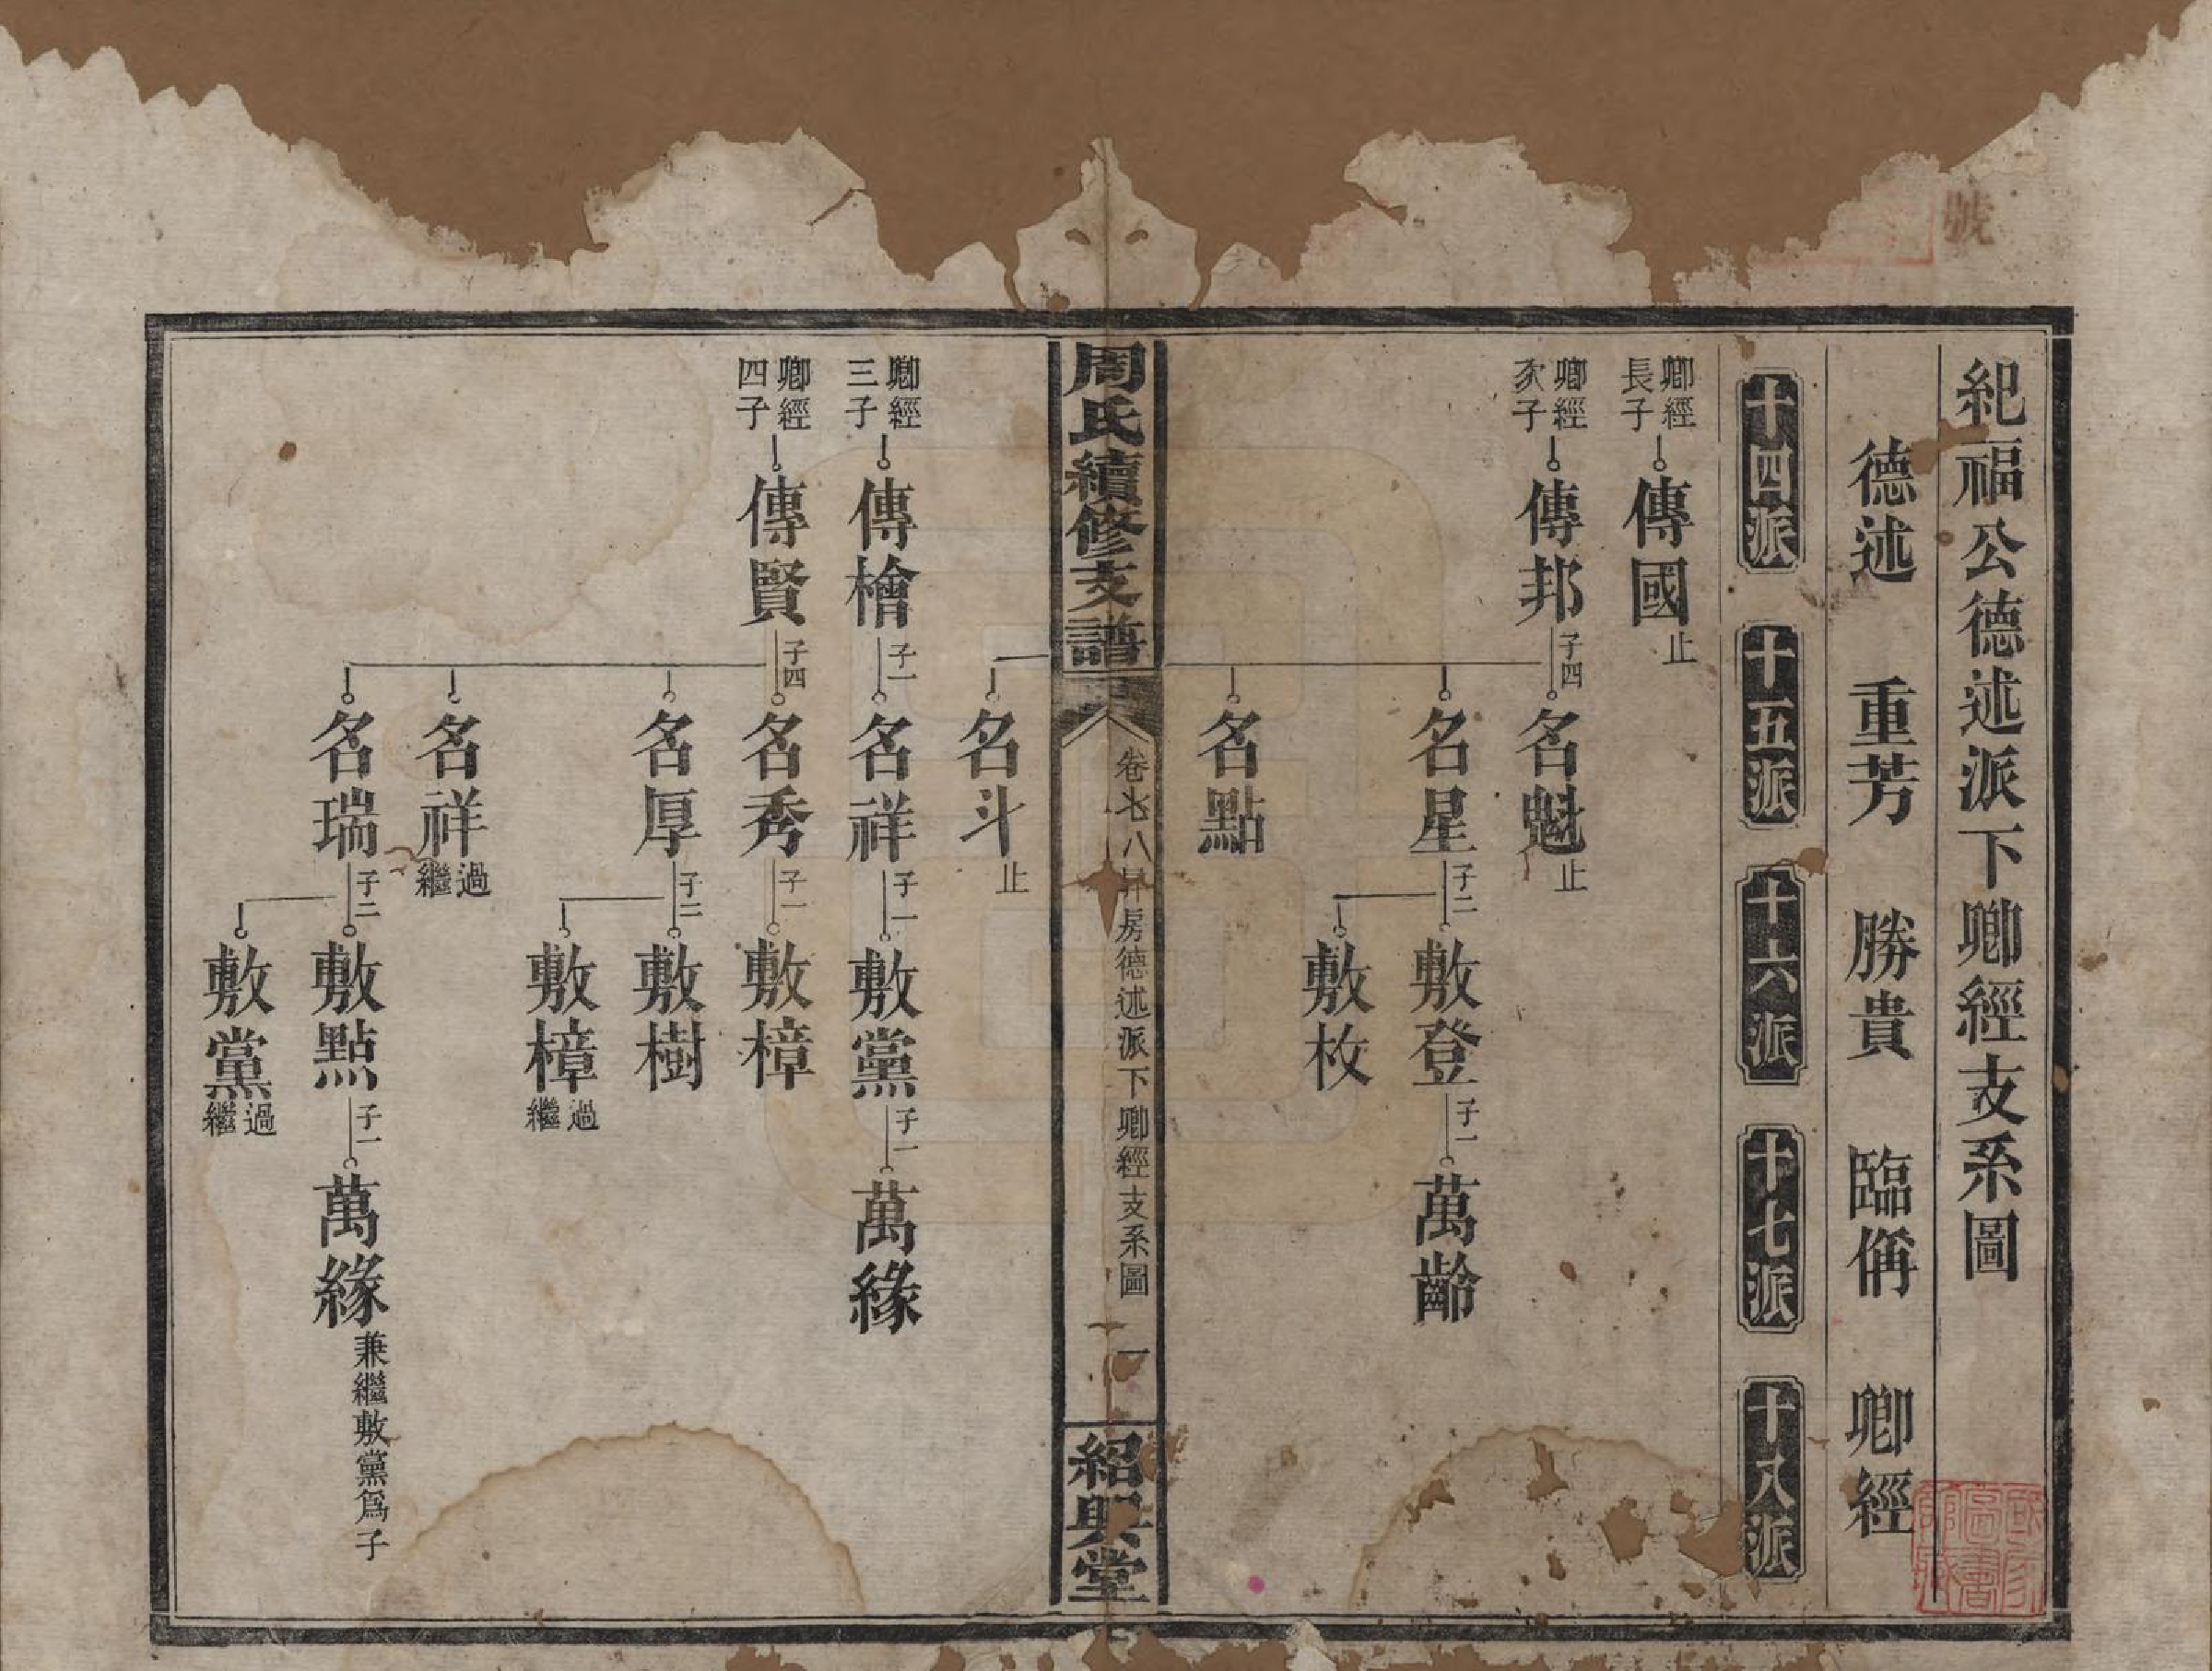 號
紀福公德述派下卿經支系圖
德述 重芳 勝貴 臨偁 卿經
十四派 十五派 十六派 十七派 十八派
卿經長子 傳國 止
卿經次子 傳邦 子四 名魁 止
名星 子二 敷登 子一 萬齡
敷枚
名點
周氏續修支譜 卷七八 昇房德述派下卿經支系圖 一 紹興堂
名斗 止
卿經三子 傳檜 子一 名祥 子一 敷黨 子一 萬緣
卿經四子 傳賢 子四 名秀 子一 敷樟
名厚 子二 敷樹
敷樟 過繼
名祥 過繼
名瑞 子二 敷點 子一 萬緣 兼繼敷黨爲子
敷黨 過繼